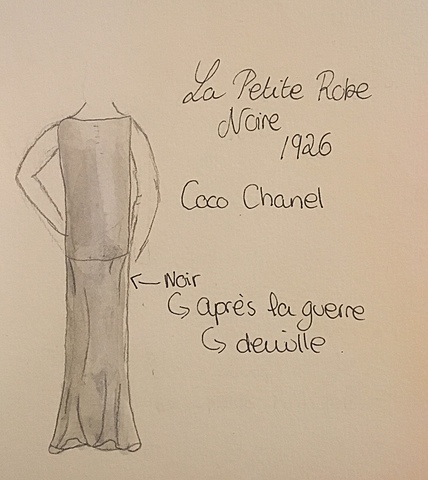 La Petite Robe
Noire
1926
Coco Chanel
Noir
après la guerre
deuille